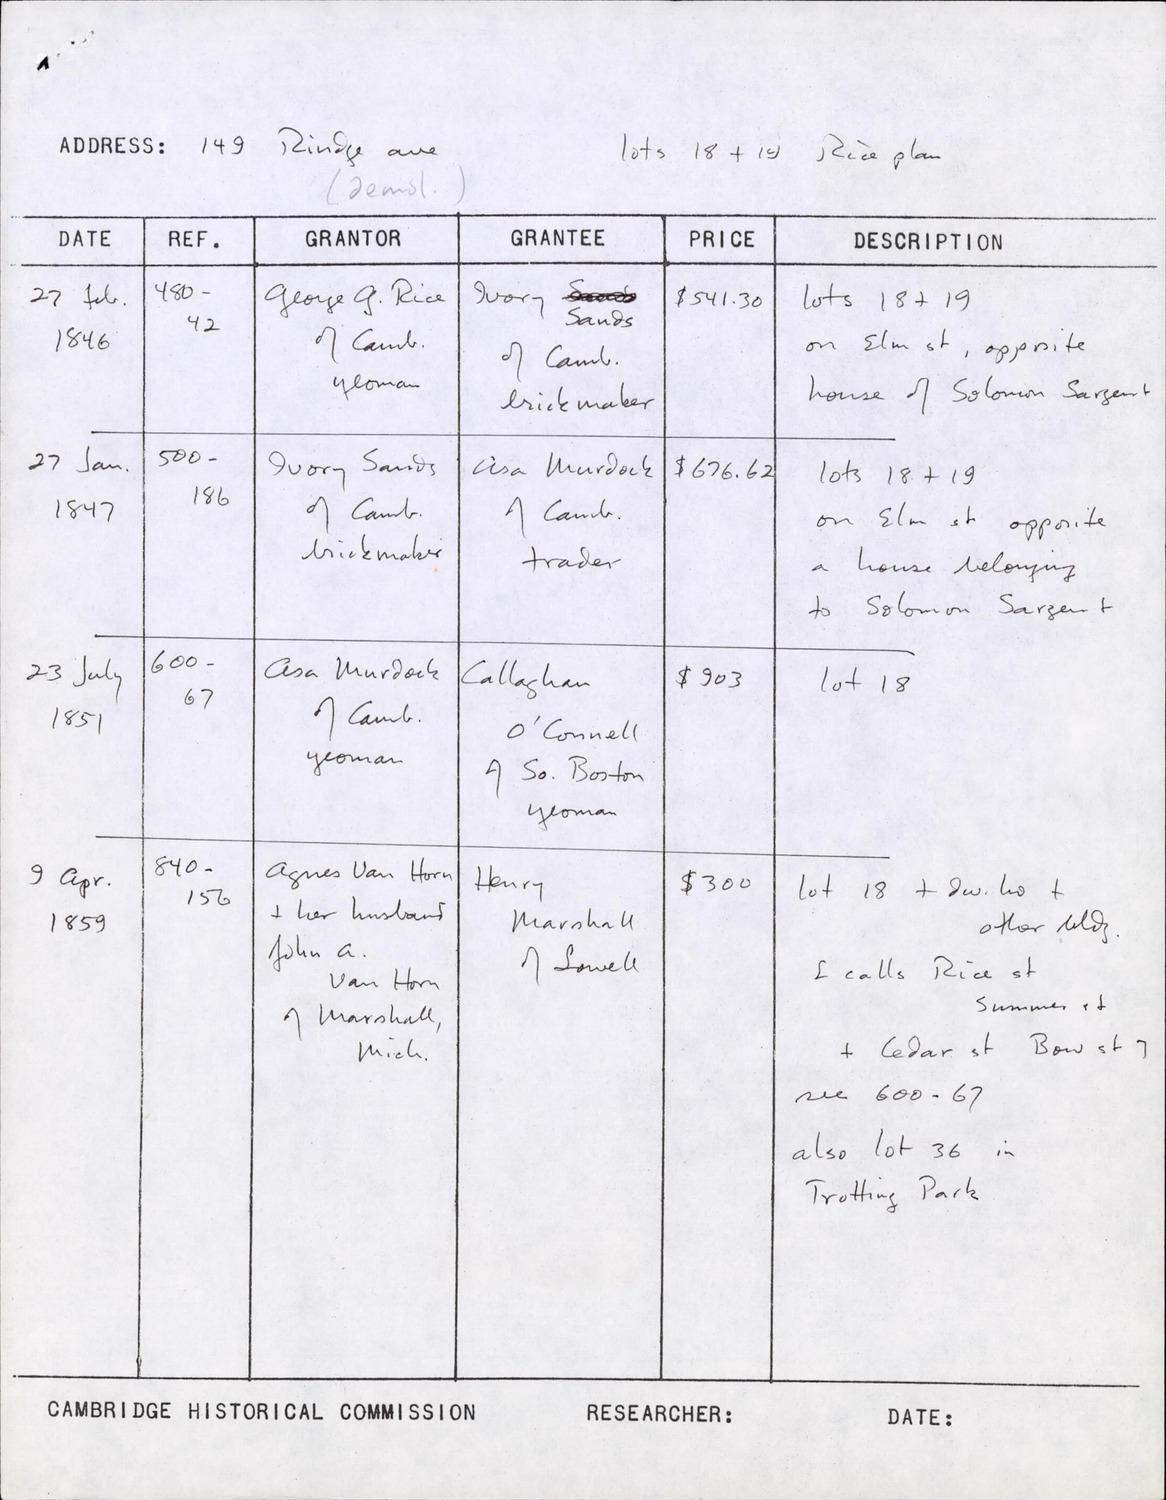 ADDRESS: 149 Rindge ave lots 18 + 19 Rice plan
(demol.)
DATE REF. GRANTOR GRANTEE PRICE DESCRIPTION
27 feb. 1846
480-42
George G. Rice
of Camb.
yeoman
Ivory Sands
Sands
of Camb.
brickmaker
$541.30
lots 18 + 19
on Elm st, opposite
house of Solomon Sargent
27 Jan. 1847
500-186
Ivory Sands
of Camb.
brickmaker
Asa Murdock
of Camb.
trader
$676.62
lots 18 + 19
on Elm st opposite
a house belonging
to Solomon Sargent
23 July 1851
600-67
Asa Murdock
of Camb.
yeoman
Callaghan
O'Connell
of So. Boston
yeoman
$903
lot 18
9 Apr. 1859
840-156
Agnes Van Horn
+ her husband
John A.
Van Horn
of Marshall,
Mich.
Henry
Marshall
of Lowell
$300
lot 18 + dw. ho +
other bldg.
[calls Rice st
Summer st
+ Cedar st Bow st]
see 600-67
also lot 36 in
Trotting Park
CAMBRIDGE HISTORICAL COMMISSION RESEARCHER: DATE: